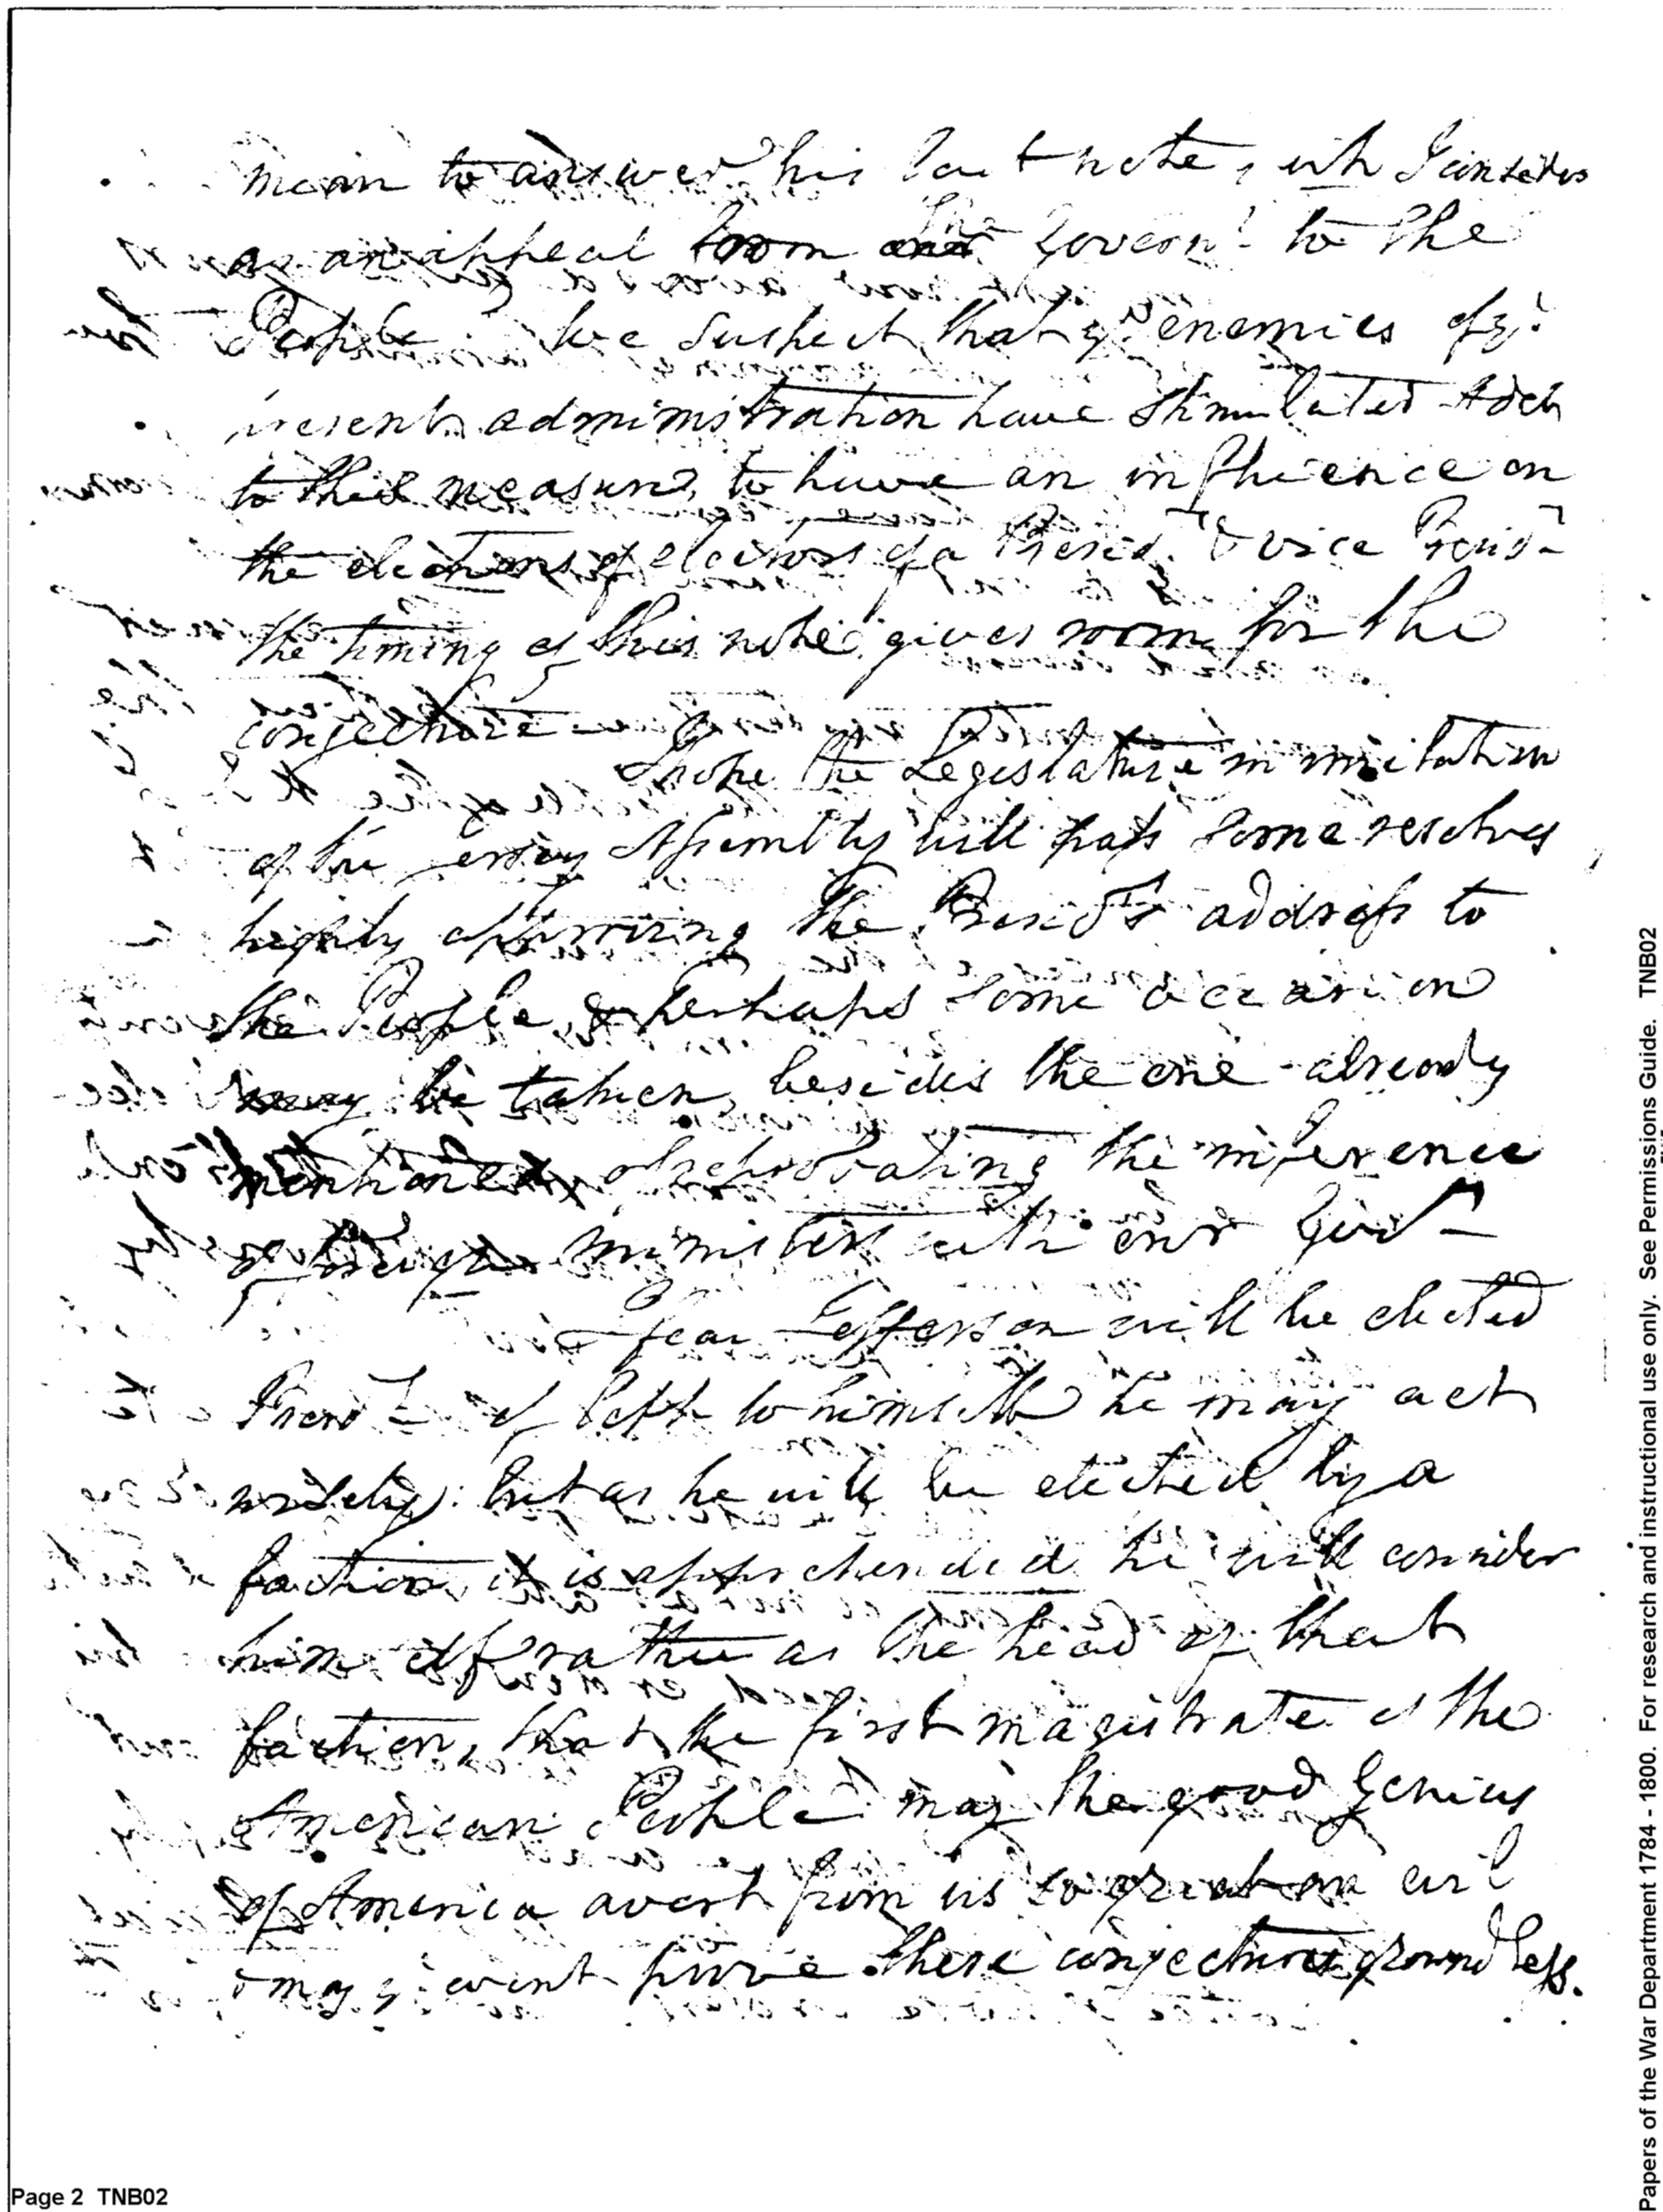 mean to answer his last note, wh I consider
as an appeal from the Governt to the
People. We suspect that ye enemies of ye
present administration have stimulated Adet
to this measure, to have an influence on
the elections of electors of a Presidt & vice Presidt
the timing of this note gives room for the
conjecture —
I hope the Legislature in imitation
of the Jersey Assembly will pass some resolves
highly approving the Presdts address to
the People, & perhaps some occasion
may be taken, besides the one already
mentioned, of reprobating the interference
of foreign ministers with our Govt —
I fear Jefferson will be elected
Presdt — if left to himself he may act
wisely: but as he will be elected by a
faction, it is apprehended he will consider
himself rather as the head of that
faction, than the first magistrate of the
American People may the good Genius
of America avert from us so great an evil
& may ye event prove these conjectures groundless.
Papers of the War Department 1784 - 1800. For research and instructional use only. See Permissions Guide. TNB02
Page 2 TNB02